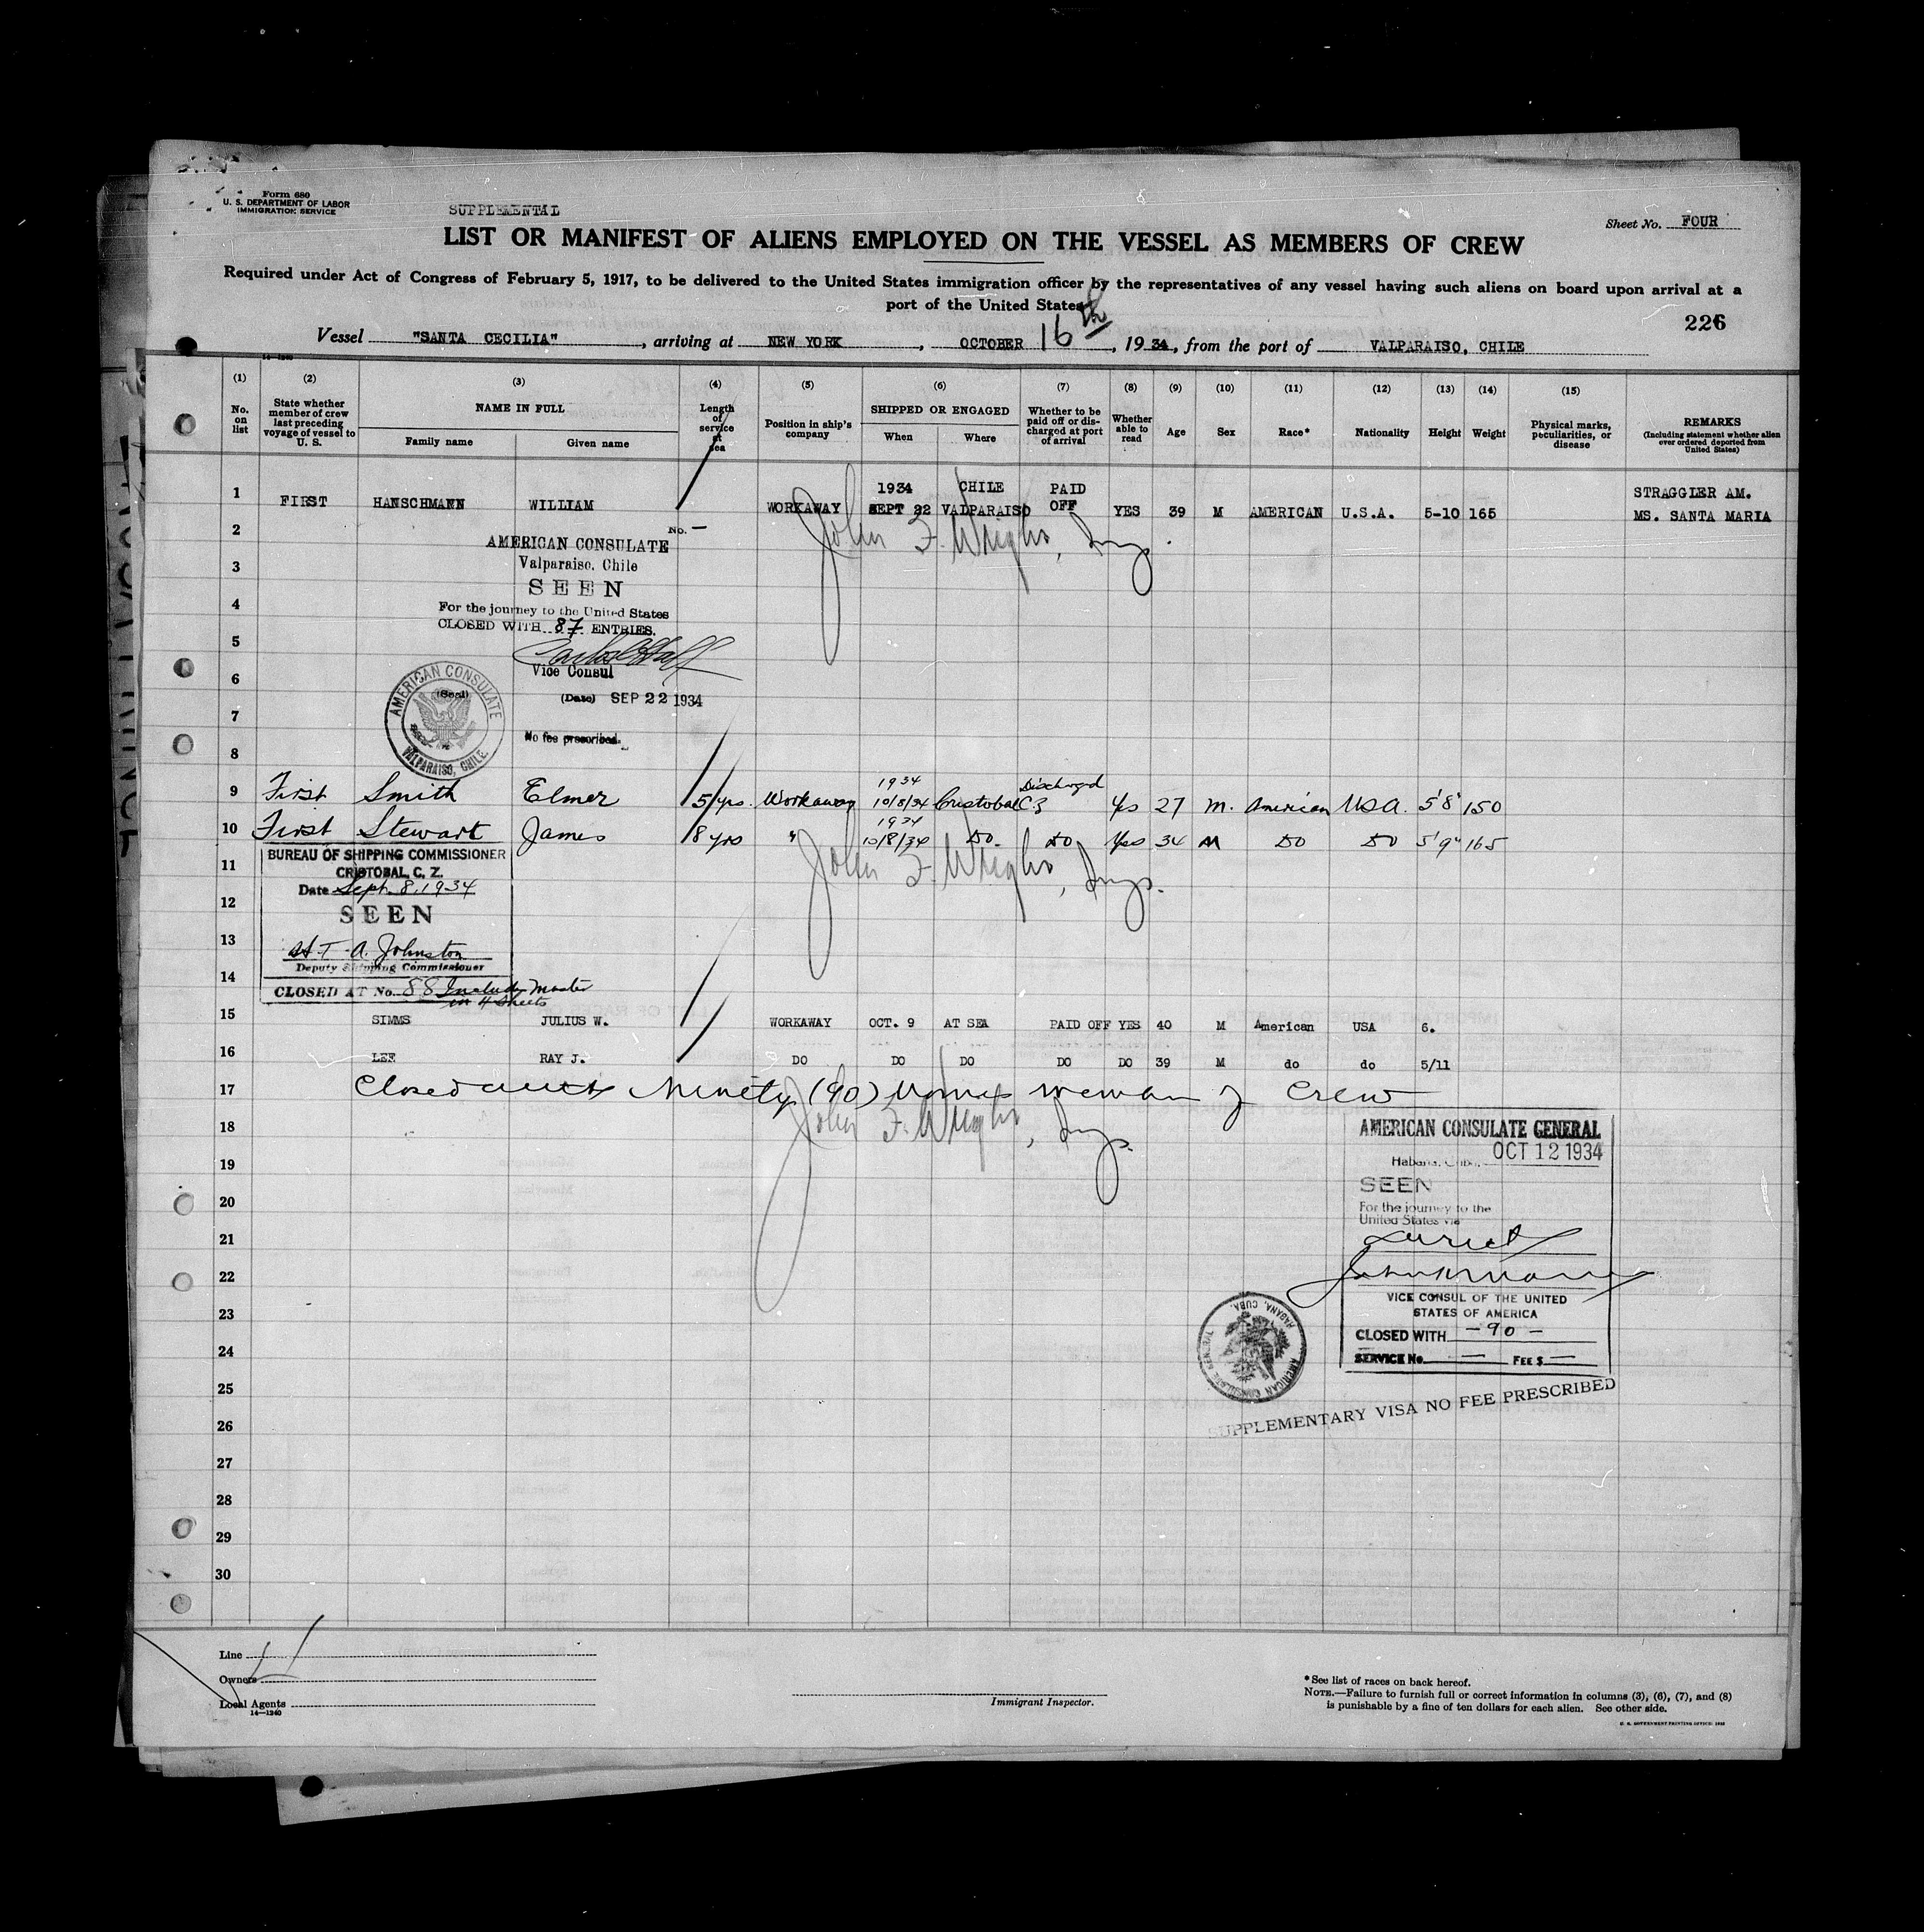 Form 680
U. S. DEPARTMENT OF LABOR
IMMIGRATION SERVICE
SUPPLEMENTAL
Sheet No. FOUR
LIST OR MANIFEST OF ALIENS EMPLOYED ON THE VESSEL AS MEMBERS OF CREW
Required under Act of Congress of February 5, 1917, to be delivered to the United States immigration officer by the representatives of any vessel having such aliens on board upon arrival at a
port of the United States
226
Vessel "SANTA CECILIA", arriving at NEW YORK, OCTOBER 16th, 1934, from the port of VALPARAISO, CHILE
14-1240
(1) (2) (3) (4) (5) (6) (7) (8) (9) (10) (11) (12) (13) (14) (15)
No. on list
State whether member of crew last preceding voyage of vessel to U. S.
NAME IN FULL
Family name
Given name
Length of service at sea
Position in ship's company
SHIPPED OR ENGAGED
When
Where
Whether to be paid off or discharged at port of arrival
Whether able to read
Age
Sex
Race*
Nationality
Height
Weight
Physical marks, peculiarities, or disease
REMARKS
(Including statement whether alien ever ordered deported from United States)
1 FIRST HANSCHMANN WILLIAM WORKAWAY 1934 SEPT 22 CHILE VALPARAISO PAID OFF YES 39 M AMERICAN U.S.A. 5-10 165 STRAGGLER AM. MS. SANTA MARIA
John F. Wright, Insp.
2
No. —
AMERICAN CONSULATE
3
Valparaiso, Chile
SEEN
4
For the journey to the United States
CLOSED WITH 87 ENTRIES.
5
6
Vice Consul
(Date) SEP 22 1934
7
No fee prescribed.
8
(Seal)
AMERICAN CONSULATE
VALPARAISO, CHILE.
9 First Smith Elmer 5 yrs. Workaway 1934 10/8/34 Cristobal C.Z Discharged Yes 27 M. American USA. 5'8" 150
10 First Stewart James 8 yrs " 1934 10/8/34 DO. DO Yes 34 M DO DO 5'9" 165
John F. Wright, Insp.
11
BUREAU OF SHIPPING COMMISSIONER
CRISTOBAL, C. Z.
Date Sept. 8, 1934
12
SEEN
13
A. Johnston
Deputy Shipping Commissioner
14
CLOSED AT No. 88 Includg Master
in 4 Sheets
15 SIMMS JULIUS W. WORKAWAY OCT. 9 AT SEA PAID OFF YES 40 M American USA 6.
16 LEE RAY J. DO DO DO DO DO 39 M do do 5/11
17 Closed with Ninety (90) names member of Crew
John F. Wright, Insp.
18
AMERICAN CONSULATE GENERAL
Habana, Cuba. OCT 12 1934
19
20
SEEN
For the journey to the
United States via
21
22
VICE CONSUL OF THE UNITED
STATES OF AMERICA
23
CLOSED WITH - 90 -
24
SERVICE No. — FEE $ —
AMERICAN CONSULATE GENERAL
HABANA, CUBA.
25
SUPPLEMENTARY VISA NO FEE PRESCRIBED
26
27
28
29
30
Line
Owners
Local Agents
14—1240
Immigrant Inspector.
*See list of races on back hereof.
NOTE.—Failure to furnish full or correct information in columns (3), (6), (7), and (8)
is punishable by a fine of ten dollars for each alien. See other side.
U. S. GOVERNMENT PRINTING OFFICE: